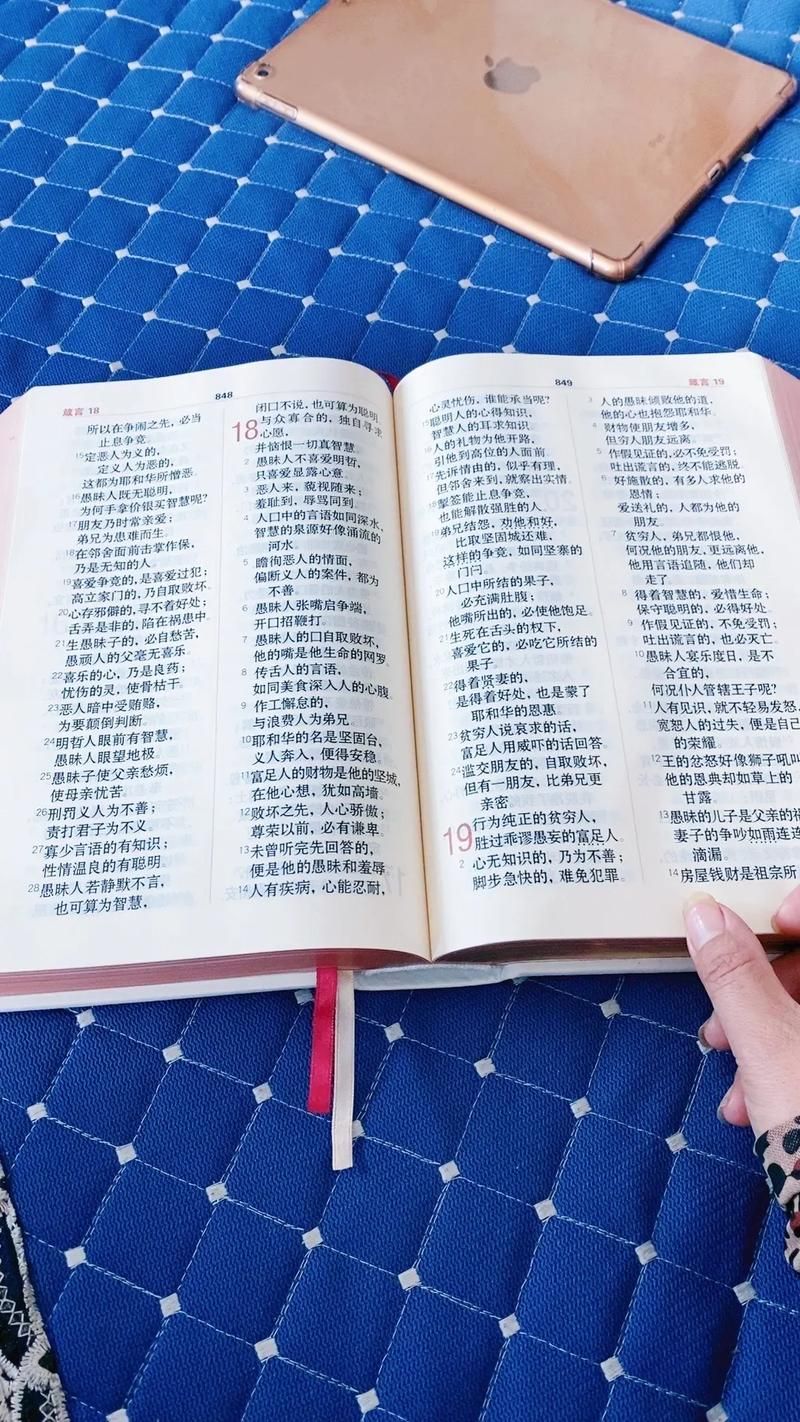 箴言 18
848
所以在争闹之先，必当
止息争竞。
15定恶人为义的，
定义人为恶的，
这都为耶和华所憎恶。
16愚昧人既无聪明，
为何手拿价银买智慧呢？
17朋友乃时常亲爱；
弟兄为患难而生。
18在邻舍面前击掌作保，
乃是无知的人。
19喜爱争竞的，是喜爱过犯；
高立家门的，乃自取败坏。
20心存邪僻的，寻不着好处；
舌弄是非的，陷在祸患中。
21生愚昧子的，必自愁苦，
愚顽人的父毫无喜乐。
22喜乐的心，乃是良药；
忧伤的灵，使骨枯干。
23恶人暗中受贿赂，
为要颠倒判断。
24明哲人眼前有智慧，
愚昧人眼望地极。
25愚昧子使父亲愁烦，
使母亲忧苦。
26刑罚义人为不善；
责打君子为不义。
27寡少言语的有知识；
性情温良的有聪明。
28愚昧人若静默不言，
也可算为智慧，
闭口不说，也可算为聪明。
18与众寡合的，独自寻求
心愿，
并恼恨一切真智慧。
2 愚昧人不喜爱明哲，
只喜爱显露心意。
3 恶人来，藐视随来；
羞耻到，辱骂同到。
4 人口中的言语如同深水，
智慧的泉源好像涌流的
河水。
5 瞻徇恶人的情面，
偏断义人的案件，都为
不善。
6 愚昧人张嘴启争端，
开口招鞭打。
7 愚昧人的口自取败坏，
他的嘴是他生命的网罗。
8 传舌人的言语，
如同美食深入人的心腹。
9 作工懈怠的，
与浪费人为弟兄。
10耶和华的名是坚固台，
义人奔入，便得安稳。
11富足人的财物是他的坚城，
在他心想，犹如高墙。
12败坏之先，人心骄傲；
尊荣以前，必有谦卑。
13未曾听完先回答的，
便是他的愚昧和羞辱。
14人有疾病，心能忍耐，
849
箴言 19
心灵忧伤，谁能承当呢？
15聪明人的心得知识，
智慧人的耳求知识。
16人的礼物为他开路，
引他到高位的人面前。
17先诉情由的，似乎有理，
但邻舍来到，就察出实情。
18掣签能止息争竞，
也能解散强胜的人。
19弟兄结怨，劝他和好，
比取坚固城还难，
这样的争竞，如同坚寨的
门闩。
20人口中所结的果子，
必充满肚腹；
他嘴所出的，必使他饱足。
21生死在舌头的权下，
喜爱它的，必吃它所结的
果子。
22得着贤妻的，
是得着好处，也是蒙了
耶和华的恩惠。
23贫穷人说哀求的话，
富足人用威吓的话回答。
24滥交朋友的，自取败坏，
但有一朋友，比弟兄更
亲密。
19行为纯正的贫穷人，
胜过乖谬愚妄的富足人。
2 心无知识的，乃为不善；
脚步急快的，难免犯罪。
3 人的愚昧倾败他的道，
他的心也抱怨耶和华。
4 财物使朋友增多，
但穷人朋友远离。
5 作假见证的，必不免受罚；
吐出谎言的，终不能逃脱。
6 好施散的，有多人求他的
恩情；
爱送礼的，人都为他的
朋友。
7 贫穷人，弟兄都恨他，
何况他的朋友，更远离他，
他用言语追随，他们却
走了。
8 得着智慧的，爱惜生命；
保守聪明的，必得好处。
9 作假见证的，不免受罚；
吐出谎言的，也必灭亡。
10愚昧人宴乐度日，是不
合宜的，
何况仆人管辖王子呢？
11人有见识，就不轻易发怒，
宽恕人的过失，便是自己
的荣耀。
12王的忿怒好像狮子吼叫
他的恩典却如草上的
甘露。
13愚昧的儿子是父亲的祸
妻子的争吵如雨连连
滴漏。
14房屋钱财是祖宗所